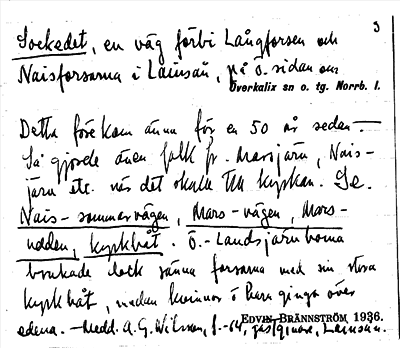 3
Sockedet, en väg förbi Långforsen och
Naisforsarna i Lainsån, på ö. sidan om
Överkalix sn o. tg. Norrb. l.
Detta förekom ännu för en 50 år sedan –
Så gjorde även folk fr. Marsjärv, Nais-
järv etc. när det skulle till kyrkan. Se.
Nais-sommarvägen, Mars-vägen, Mars-
udden, kyrkbåt. Ö.-Landsjärvborna
brukade dock ränna forsarna med sin stora
kyrkbåt, medan kvinnor o barn gingo över
edena. – Medd. A. G. f. -64, Lainsån.
EDVIN BRÄNNSTRÖM 1936.